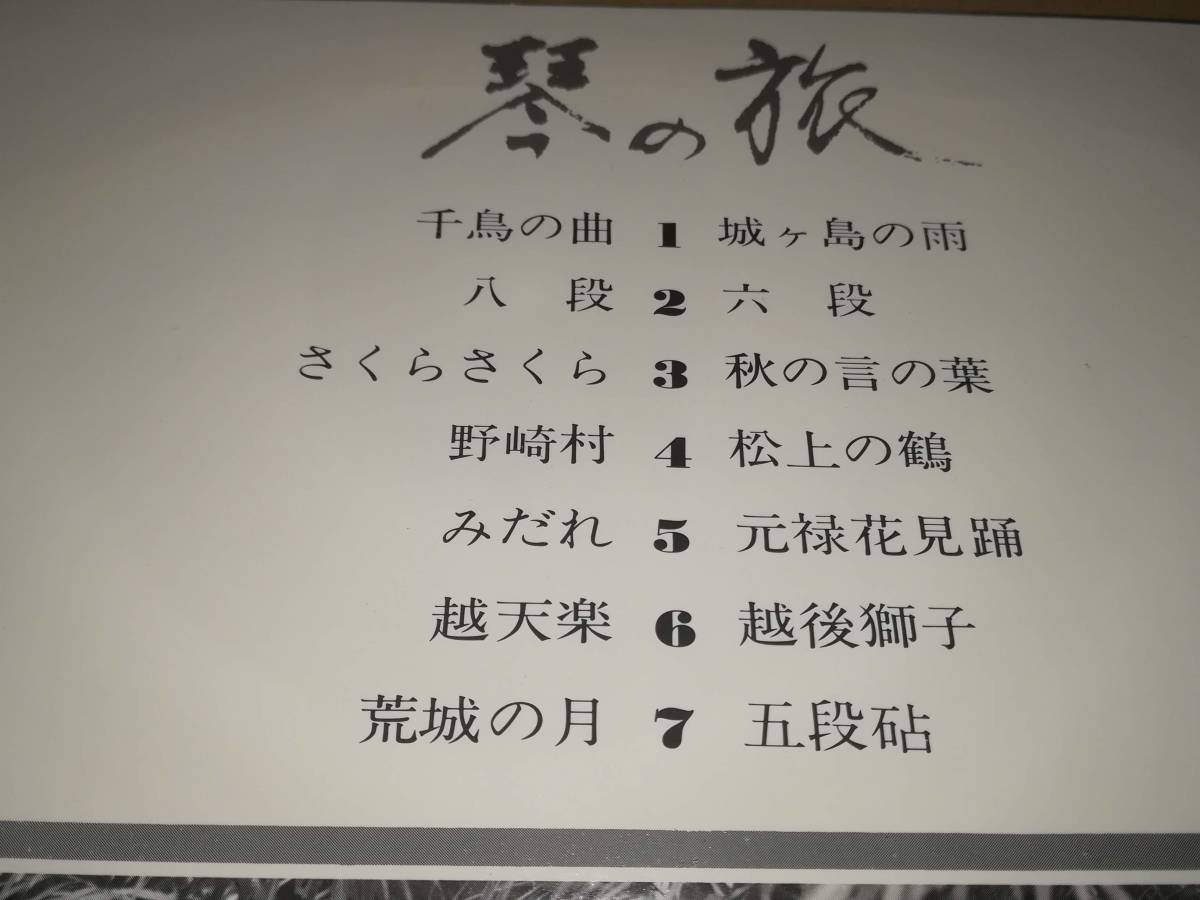 琴の旅
千鳥の曲 1 城ヶ島の雨
八 段 2 六 段
さくらさくら 3 秋の言の葉
野崎村 4 松上の鶴
みだれ 5 元禄花見踊
越天楽 6 越後獅子
荒城の月 7 五段砧